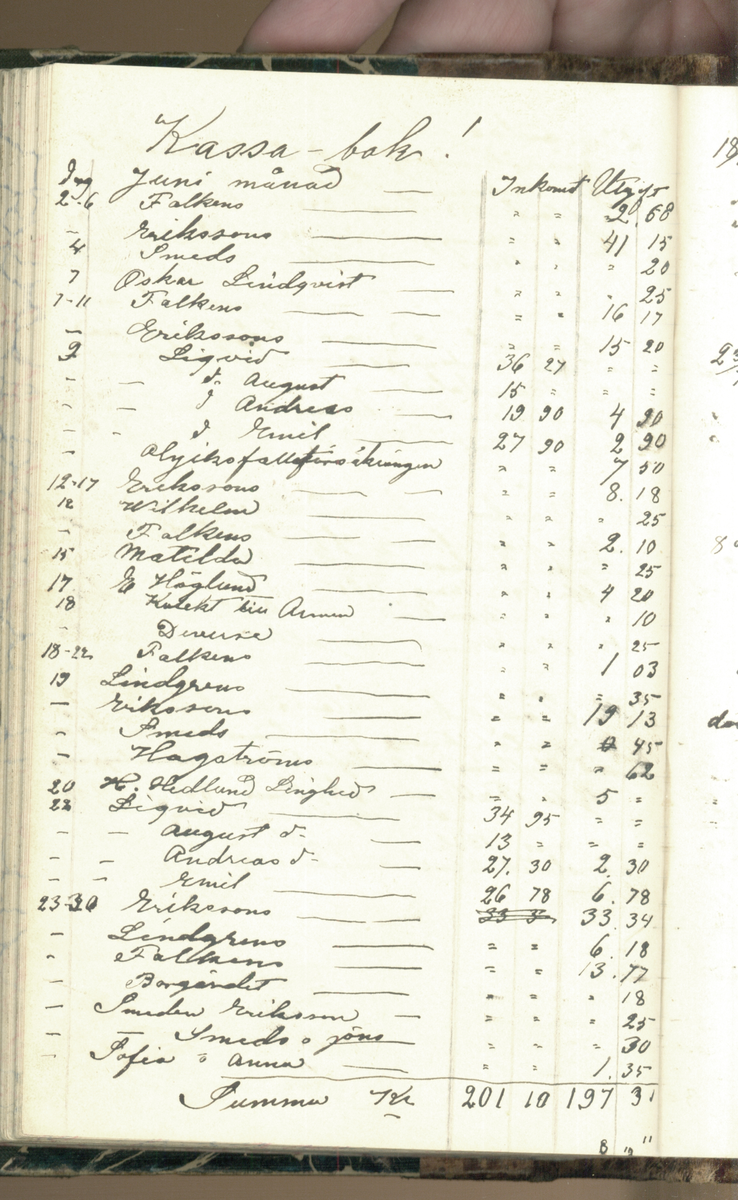 Kassa-bok!
Dag Juni månad — Inkomst Utgift
2-6 Falkens — " " 2.68
— Erikssons — " " 41 15
4 Smeds — " " " 20
7 Oskar Lindqvist — " " " 25
7-11 Falkens — " " 16 17
— Erikssons — " " 15 20
9 Liqvid — 36 27 " "
- — d- August — 15 " " "
- — d Andreas — 19 90 4 90
- " d Emil — 27 90 2 90
- Olyksfallsförsäkringen " " 7 50
12-17 Erikssons — " " 8.18
12 Wilhelm — " " " 25
- Falkens — " " 2.10
15 Matilda — " " " 25
17 E Höglund — " " 4 20
18 till Armen — " " " 10
- Diverse — " " " 25
18-22 Falkens — " " 1 03
19 Lindgrens — " " " 35
— Erikssons — " " 19 13
- Smeds — " " 0 45
— Hagströms — " " " 62
20 H. Hedlund Linghed — " " 5 "
22 Liqvid — 34 95 " "
- — August d- 13 " " "
- — Andreas d- 27.30 2.30
- " Emil — 26 78 6.78
23-30 Erikssons — 33 34
- Lindgrens — " " 6.18
- Falkens — " " 13.77
— Borgärdet — " " " 18
— Smeden Eriksson — " " " 25
— Smeds o jöns — " " " 30
— Sofia o Anna — " " 1.35
Summa Kr 201 10 197 31